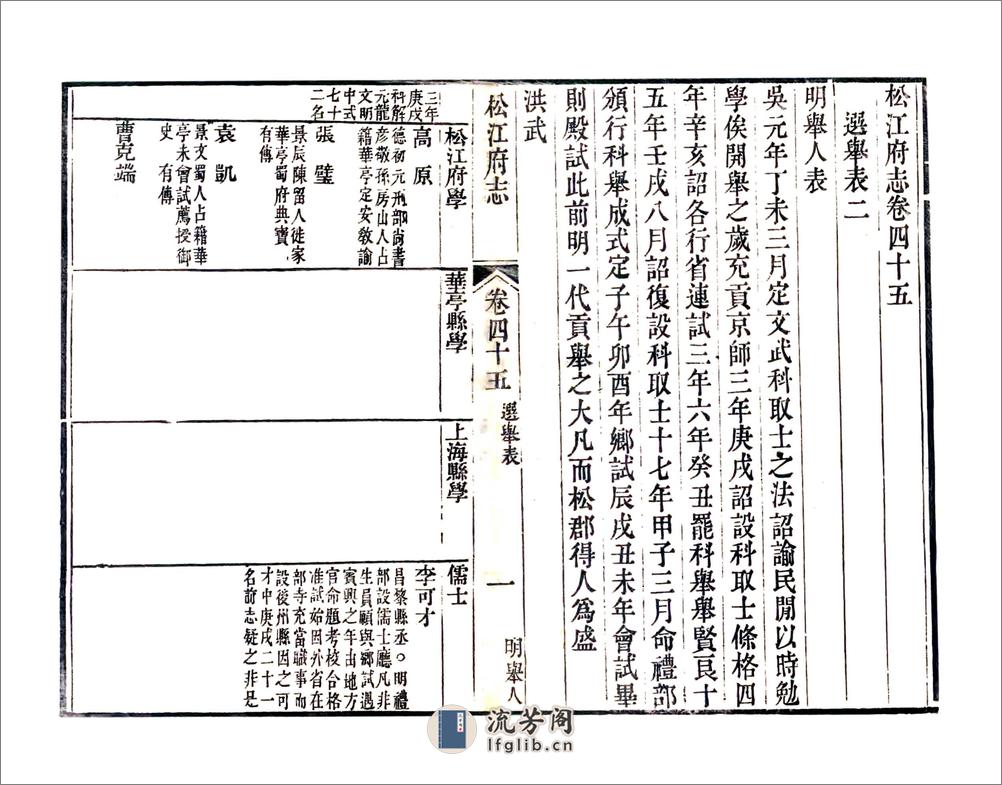 松江府志卷四十五
選舉表二
明舉人表
吳元年丁未三月定文武科取士之法詔諭民間以時勉
學俟開舉之歲充貢京師三年庚戌詔設科取士條格四
年辛亥詔各行省連試三年六年癸丑罷科舉舉賢良十
五年壬戌八月詔復設科取士十七年甲子三月命禮部
頒行科舉成式定子午卯酉年鄉試辰戌丑未年會試畢
則殿試此前明一代貢舉之大凡而松郡得人為盛
洪武
松江府志
卷四十五
選舉表
一
明舉人
松江府學
華亭縣學
上海縣學
儒士
三年
庚戌
科解
元龍
文明
中式
七十
二名
高原
德初元刑部尚書
彥敬孫房山人占
籍華亭定安教諭
張璧
景辰陳留人徙家
華亭蜀府典寶
有傳
袁凱
景文蜀人占籍華
亭未會試薦授御
史有傳
曹克端
李可才
昌黎縣丞○明禮
部設儒士廳凡非
生員願與鄉試遇
賓興之年由地方
官命題考校合格
准試始因外省在
部寺充當職事而
設後州縣因之可
才中庚戌二十一
名前志疑之非是
流芳阁
lfglib.cn